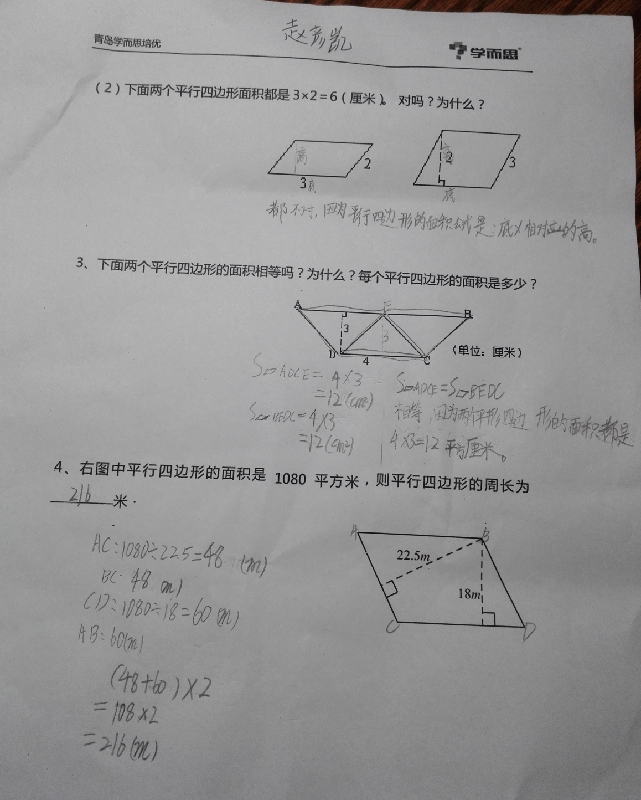 赵彦凯
青岛学而思培优
学而思
(2)下面两个平行四边形面积都是3×2=6(厘米)。 对吗?为什么?
高
2
3底
高
2
3
底
都不对,因为平行四边形的面积公式是:底×相对应的高。
3、下面两个平行四边形的面积相等吗?为什么?每个平行四边形的面积是多少?
A E B
3
3
D 4 C
(单位:厘米)
S▱ADCE=4×3
=12(cm²)
S▱BEDC=4×3
=12(cm²)
S▱ADCE=S▱BEDC
相等,因为两个平行四边形的面积都是
4×3=12平方厘米。
4、右图中平行四边形的面积是 1080 平方米,则平行四边形的周长为
216 米.
A B
22.5m
18m
C D
AC:1080÷22.5=48(m)
BC:48(m)
CD:1080÷18=60(m)
AB=60(m)
(48+60)×2
=108×2
=216(m)